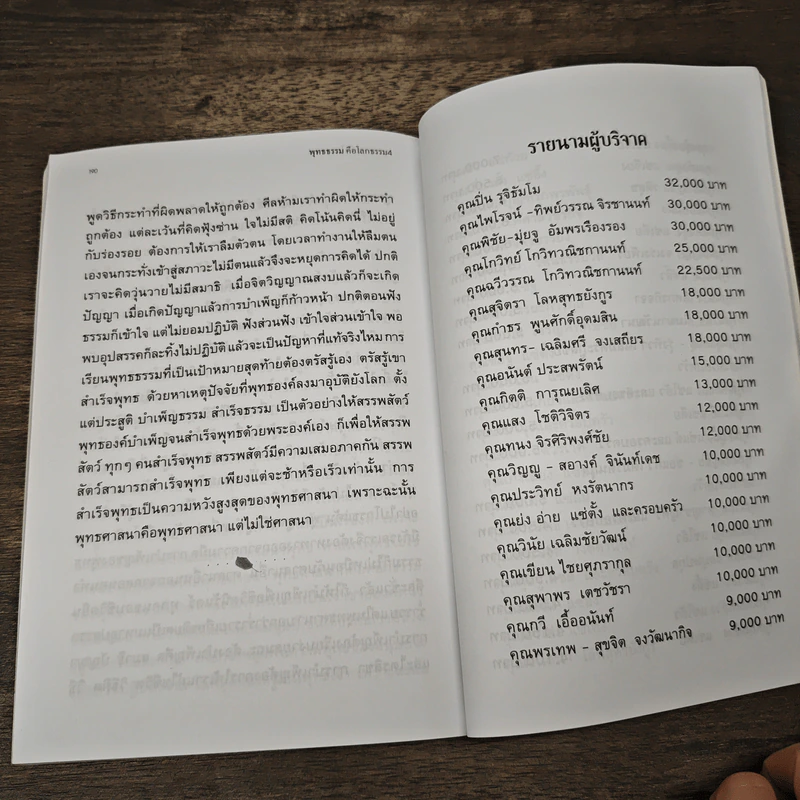 พุทธธรรม คือโลกธรรม4
๖๐
พูดวิธีกระทำที่ผิดพลาดให้ถูกต้อง ศีลห้ามเราทำผิดให้กระทำ
ถูกต้อง แต่ละเว้นที่คิดฟุ้งซ่าน ใจไม่มีสติ คิดโน้นคิดนี่ ไม่อยู่
กับร่องรอย ต้องการให้เราลืมตัวตน โดยเวลาทำงานให้ลืมตน
เองจนกระทั่งเข้าสู่สภาวะไม่มีตนแล้วจึงจะหยุดการคิดได้ ปกติ
เราจะคิดวุ่นวายไม่มีสมาธิ เมื่อจิตวิญญาณสงบแล้วก็จะเกิด
ปัญญา เมื่อเกิดปัญญาแล้วการบำเพ็ญก็ก้าวหน้า ปกติตอนฟัง
ธรรมก็เข้าใจ แต่ไม่ยอมปฏิบัติ ฟังส่วนฟัง เข้าใจส่วนเข้าใจ พอ
พบอุปสรรคก็ละทิ้งไม่ปฏิบัติ แล้วจะเป็นปัญหาที่แท้จริงไหม การ
เรียนพุทธธรรมที่เป็นเป้าหมายสุดท้ายต้องตรัสรู้เอง ตรัสรู้เขา
สำเร็จพุทธ ด้วยหาเหตุปัจจัยที่พุทธองค์ลงมาอุบัติยังโลก ตั้ง
แต่ประสูติ บำเพ็ญธรรม สำเร็จธรรม เป็นตัวอย่างให้สรรพสัตว์
พุทธองค์บำเพ็ญจนสำเร็จพุทธด้วยพระองค์เอง ก็เพื่อให้สรรพ
สัตว์ ทุกๆ คนสำเร็จพุทธ สรรพสัตว์มีความเสมอภาคกัน สรรพ
สัตว์สามารถสำเร็จพุทธ เพียงแต่จะช้าหรือเร็วเท่านั้น การ
สำเร็จพุทธเป็นความหวังสูงสุดของพุทธศาสนา เพราะฉะนั้น
พุทธศาสนาคือพุทธศาสนา แต่ไม่ใช่ศาสนา
รายนามผู้บริจาค
คุณปิ่น รุจิธัมโม 32,000 บาท
คุณไพโรจน์ -ทิพย์วรรณ จิรชานนท์ 30,000 บาท
คุณพิชัย-มุ่ยจู อัมพรเรืองรอง 30,000 บาท
คุณโกวิทย์ โกวิทวณิชกานนท์ 25,000 บาท
คุณฉวีวรรณ โกวิทวณิชกานนท์ 22,500 บาท
คุณสุจิตรา โลหสุทธยังกูร 18,000 บาท
คุณกำธร พูนศักดิ์อุดมสิน 18,000 บาท
คุณสุนทร- เฉลิมศรี จงเสถียร 18,000 บาท
คุณอนันต์ ประสพรัตน์ 15,000 บาท
คุณกิตติ การุณยเลิศ 13,000 บาท
คุณแสง โชติวิจิตร 12,000 บาท
คุณทนง จิรศิริพงศ์ชัย 12,000 บาท
คุณวิญญู - สอางค์ จินันท์เดช 10,000 บาท
คุณประวิทย์ หงรัตนากร 10,000 บาท
คุณย่ง อ่าย แซ่ตั้ง และครอบครัว 10,000 บาท
คุณวินัย เฉลิมชัยวัฒน์ 10,000 บาท
คุณเขียน ไชยศุภรากุล 10,000 บาท
คุณสุพาพร เดชวัชรา 10,000 บาท
คุณกวี เอื้ออนันท์ 9,000 บาท
คุณพรเทพ - สุขจิต จงวัฒนากิจ 9,000 บาท